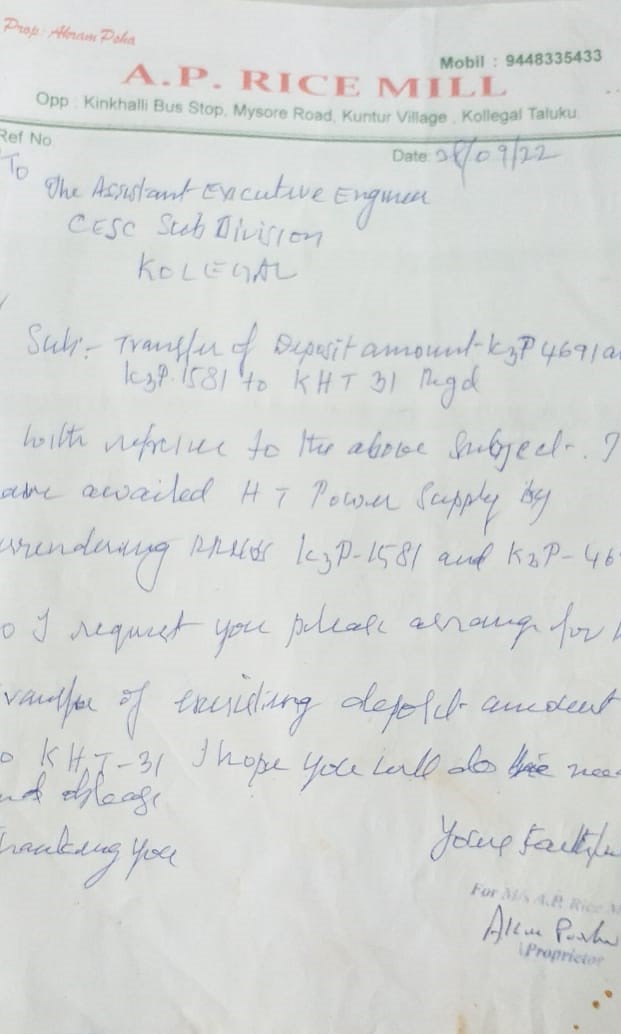 Prop: Akram Psha
Mobil : 9448335433
A.P. RICE MILL
Opp : Kinkhalli Bus Stop, Mysore Road, Kuntur Village , Kollegal Taluku.
Ref No
Date: 28/09/22
To
The Assistant Executive Engineer
CESC Sub Division
KOLEGAL
Sub:- Transfer of Deposit amount-K3P 4691 a
K3P.1581 to KHT 31 Regd
with refrence to the above Subject-. I
availed HT Power Supply by
urrendering K3P-1581 and K3P-46
o I request you please arrange for
ransfer of existing deposit amount
o KHT-31 I hope you will do the nee
nd oblege
hanking you
Yours Faithfu
For M/s A.P. Rice M
Proprietor